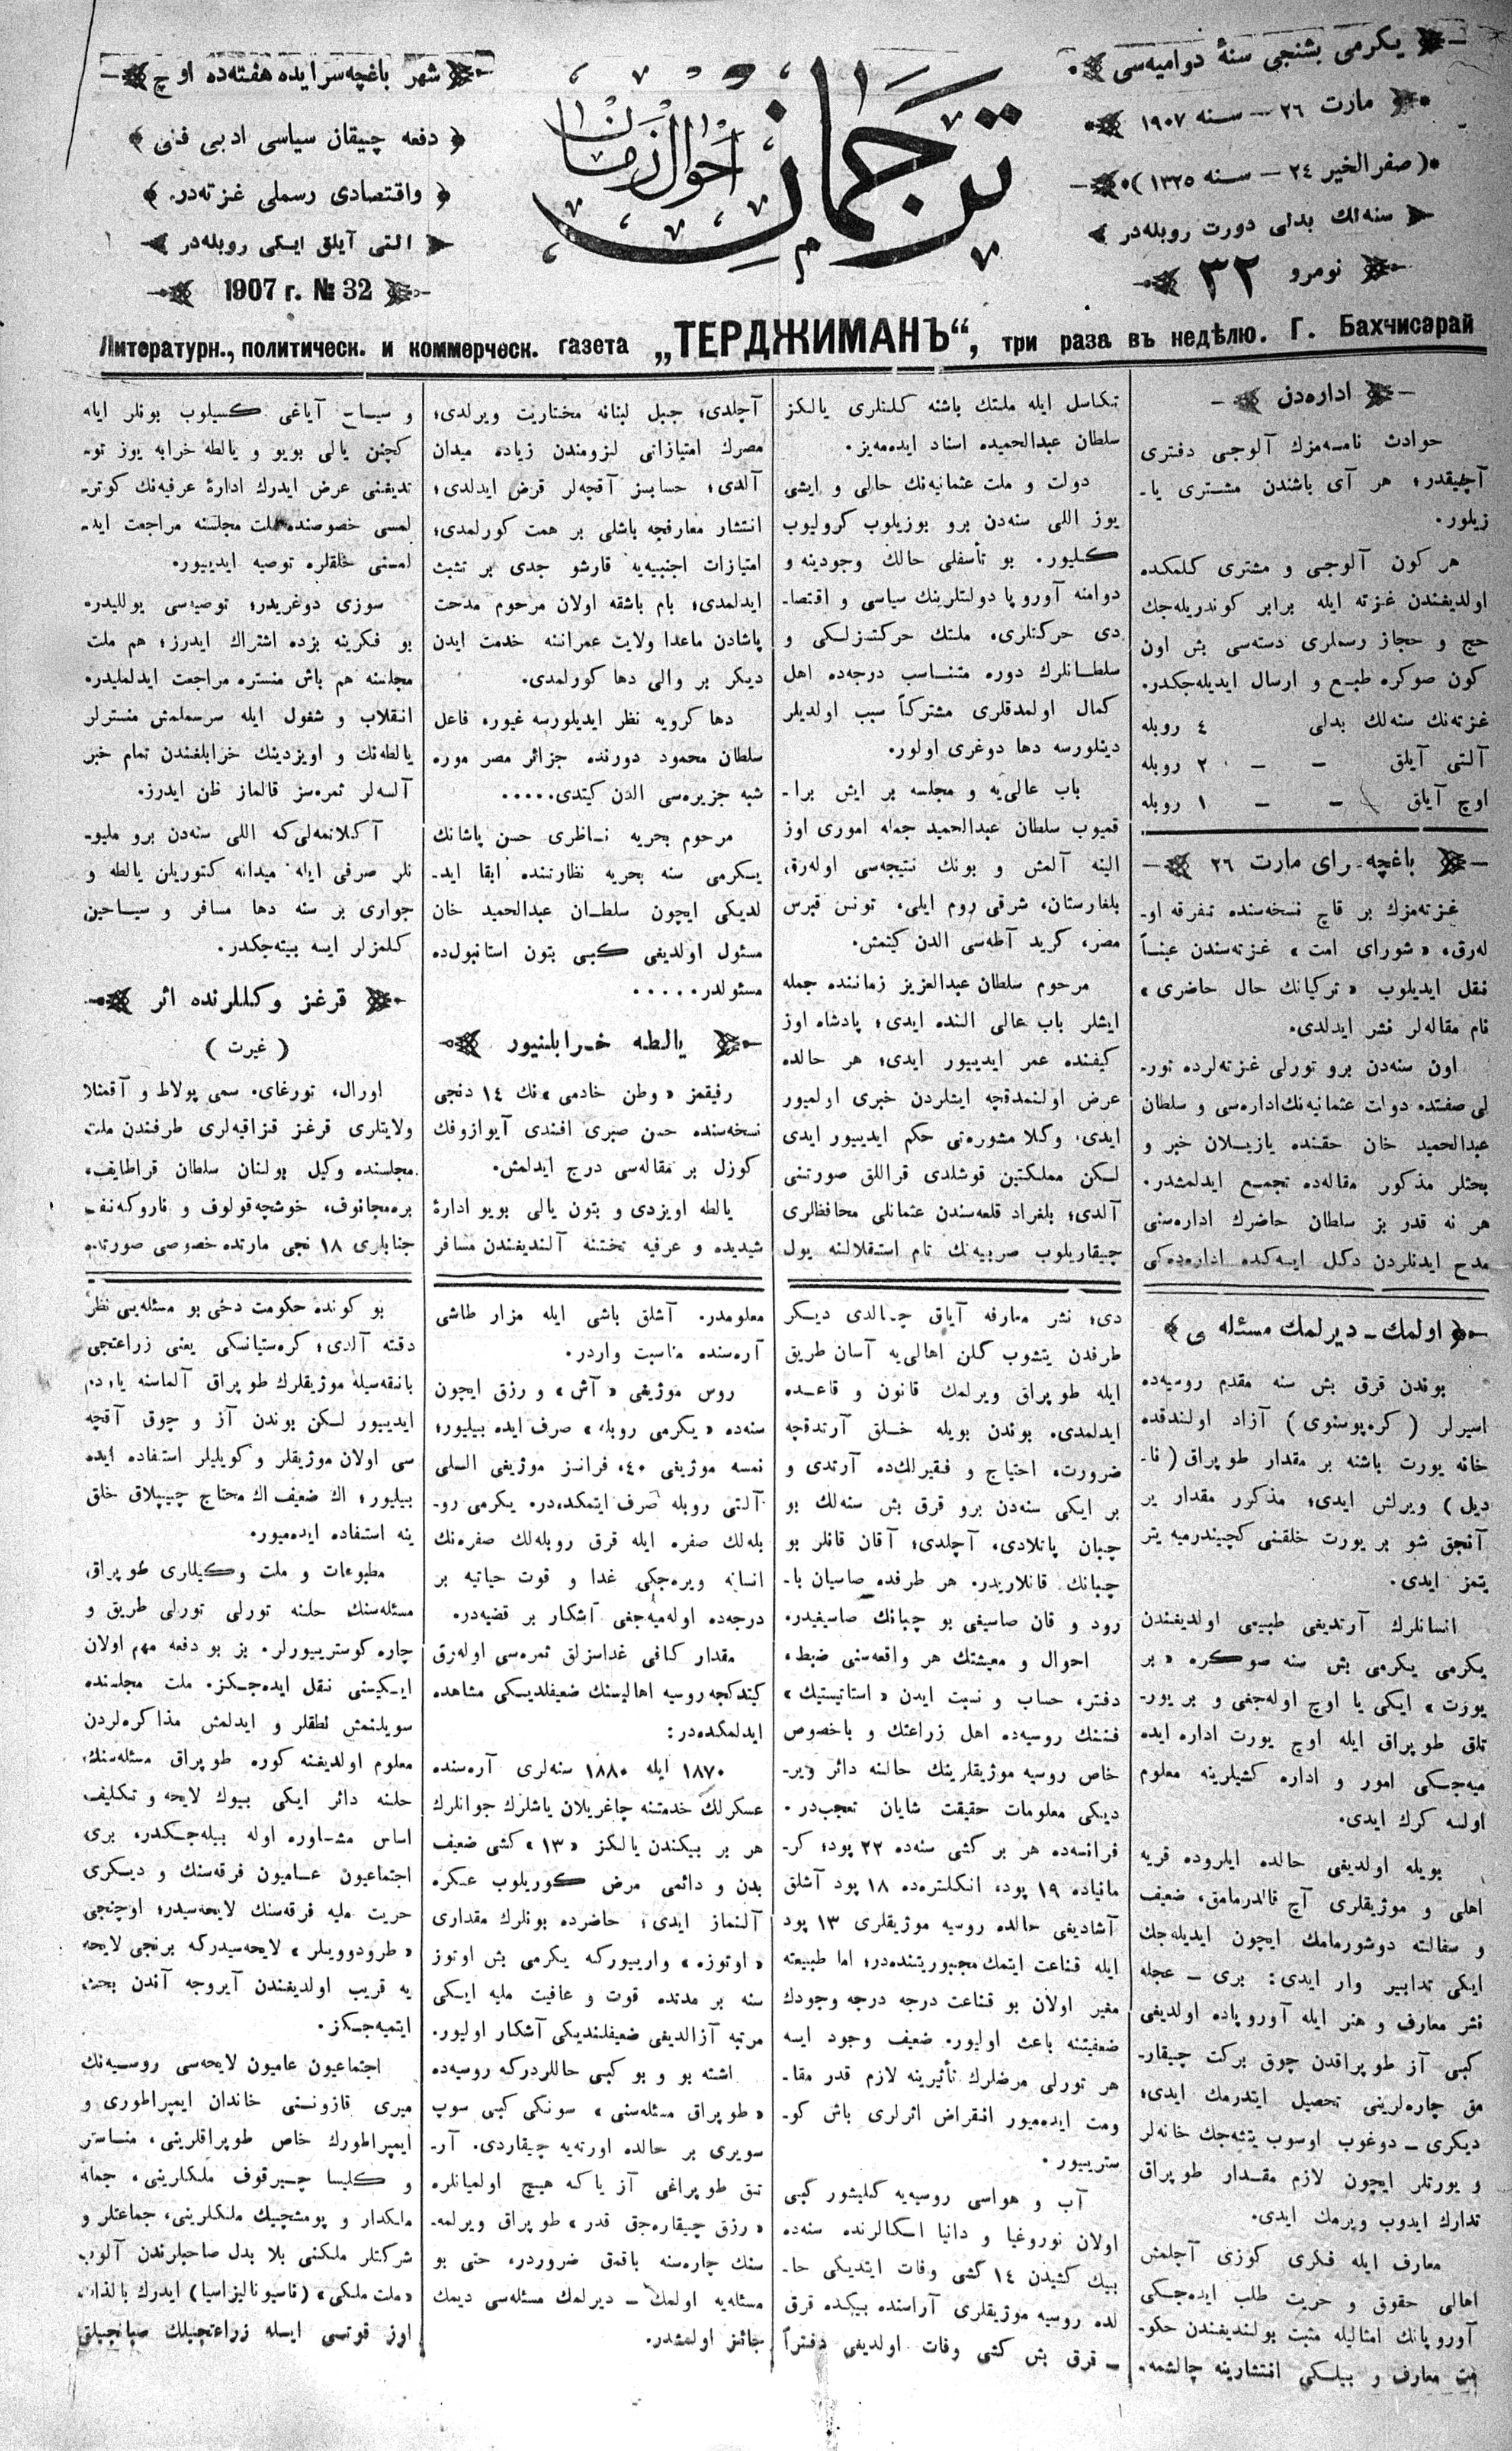 یكرمی بشنجی سنهٔ دوامیه‌سی
مارت ٢٦ — سنه ١٩٠٧
(صفر الخیر ٢٤ — سنه ١٣٢٥)
سنه‌لك بدلی دورت روبله‌در
نومرو ٣٢
ترجمان
احوال زمان
شهر باغچه‌سرایده هفته‌ده اوچ
دفعه چیقان سیاسی ادبی فنی
واقتصادی رسملی غزته‌در.
التی آیلق ایكی روبله‌در
1907 г. № 32
Литературн., политическ. и коммерческ. газета „ТЕРДЖИМАНЪ“, три раза въ недѣлю. Г. Бахчисарай
اداره‌دن
حوادث نامه‌مزك آلوجی دفتری
آچیقدر؛ هر آی باشندن مشتری یا-
زیلور.
هر كون آلوجی و مشتری كلمكده
اولدیغندن غزته ایله برابر كوندریله‌جك
حج و حجاز رسملری دسته‌سی بش اون
كون صوكره طبع و ارسال ایدیله‌جكدر.
غزته‌نك سنه‌لك بدلی ٤ روبله
آلتی آیلق — — ٢ روبله
اوچ آیلق — — ١ روبله
باغچه‌سرای مارت ٢٦
غزته‌مزك بر قاچ نسخه‌سنده تفرقه او-
له‌رق، «شورای امت» غزته‌سندن عیناً
نقل ایدیلوب «تركیانك حال حاضری»
نام مقاله‌لر نشر ایدلدی.
اون سنه‌دن برو تورلی غزته‌لرده تور-
لی صفتده دولت عثمانیه‌نك اداره‌سی و سلطان
عبدالحمید خان حقنده یازیلان خبر و
بحثلر مذكور مقاله‌ده تجمیع ایدلمشدر.
هر نه قدر بز سلطان حاضرك اداره‌سنی
مدح ایدنلردن دكل ایسه‌كده اداره‌ده‌كی
تكاسل ایله ملتك باشنه كلنلری یالكز
سلطان عبدالحمیده اسناد ایده‌مه‌یز.
دولت و ملت عثمانیه‌نك حالی و ایشی
یوز اللی سنه‌دن برو بوزیلوب كرولیوب
كلیور. بو تأسفلی حالك وجودینه و
دوامنه آوروپا دولتلرینك سیاسی و اقتصا-
دی حركتلری، ملتك حركتسزلكی و
سلطانلرك دوره متناسب درجه‌ده اهل
كمال اولمدقلری مشتركاً سبب اولدیلر
دینلورسه دها دوغری اولور.
باب عالی‌یه و مجلسه بر ایش برا-
قمیوب سلطان عبدالحمید جمله اموری اوز
الینه آلمش و بونك نتیجه‌سی اوله‌رق،
بلغارستان، شرقی روم ایلی، تونس قبرس
مصر، كرید آطه‌سی الدن كیتمش.
مرحوم سلطان عبدالعزیز زماننده جمله
ایشلر باب عالی النده ایدی؛ پادشاه اوز
كیفنده عمر ایدییور ایدی؛ هر حالده
عرض اولنمدقچه ایشلردن خبری اولمیور
ایدی. وكلا مشورەتی حكم ایدییور ایدی
لكن مملكتین قوشلدی قراللق صورتنی
آلدی؛ بلغراد قلعه‌سندن عثمانلی محافظلری
چیقاریلوب صربیه‌نك تام استقلالنه یول
آچلدی؛ جبل لبنانه مختاریت ویرلدی؛
مصرك امتیازاتی لزومندن زیاده میدان
آلدی؛ حسابسز آقچه‌لر قرض ایدلدی؛
انتشار معارفجه باشلی بر همت كورلمدی؛
امتیازات اجنبیه‌یه قارشو جدی بر تشبث
ایدلمدی؛ بام باشقه اولان مرحوم مدحت
پاشادن ماعدا ولایت عمراننه خدمت ایدن
دیكر بر والی دها كورلمدی.
دها كرویه نظر ایدیلورسه غیوره فاعل
سلطان محمود دورنده جزائر مصر موره
شبه جزیره‌سی الدن كیتدی.....
مرحوم بحریه ناظری حسن پاشانك
یكرمی سنه بحریه نظارتنده ابقا اید-
لدیكی ایچون سلطان عبدالحمید خان
مسئول اولدیغی كبی بتون استانبول‌ده
مسئولدر.....
یالطه خرابلنیور
رفیقمز «وطن خادمی»نك ١٤ دنجی
نسخه‌سنده حسن صبری افندی آیوازوفك
كوزل بر مقاله‌سی درج ایدلمش.
یالطه اویزدی و بتون یالی بویو ادارهٔ
شیدیده و عرفیه تختنه آلندیغندن مسافر
و سیاح آیاغی كسیلوب بونلر ایله
كچنن یالی بویو و یالطه خرابه یوز تو-
تدیغنی عرض ایدرك ادارهٔ عرفیه‌نك كوتر-
لمسی خصوصنده ملت مجلسنه مراجعت اید-
لمسنی خلقلره توصیه ایدییور.
سوزی دوغریدر؛ توصیه‌سی یوللیدر.
بو فكرینه بزده اشتراك ایدرز؛ هم ملت
مجلسنه هم باش منستره مراجعت ایدلملیدر.
انقلاب و شغول ایله سرسملمش منسترلر
یالطه‌نك و اویزدینك خرابلغندن تمام خبر
آلسه‌لر ثمره‌سز قالماز ظن ایدرز.
آكلانمه‌لی‌كه اللی سنه‌دن برو ملیو-
نلر صرفی ایله میدانه كتوریلن یالطه و
جواری بر سنه دها مسافر و سیاحین
كلمزلر ایسه بیته‌جكدر.
قرغز وكللرنده اثر
(غیرت)
اورال، تورغای، سمی پولاط و آقمنلا
ولایتلری قرغز قزاقبه‌لری طرفندن ملت
مجلسنده وكیل بولنان سلطان قراطایف،
بره‌مجانوف، خوشچه‌قولوف و ناروكه‌نف
جنابلری ١٨ نجی مارتده خصوصی صورتده
اولمك — دیرلمك مسئله‌سی
بوندن قرق بش سنه مقدم روسیه‌ده
اسیرلر (كره‌پوستوی) آزاد اولندقده
خانه یورت باشنه بر مقدار طوپراق (نا-
دیل) ویرلش ایدی؛ مذكور مقدار یر
آنجق شو بر یورت خلقنی كچیندرمیه یتر
یتمز ایدی.
انسانلرك آرتدیغی طبیعی اولدیغندن
یكرمی یكرمی بش سنه صوكره «بر
یورت» ایكی یا اوچ اوله‌جغی و بر یور-
تلق طوپراق ایله اوچ یورت اداره ایده
میه‌جكی امور و اداره كشیلرینه معلوم
اولسه كرك ایدی.
بویله اولدیغی حالده ایلروده قریه
اهلی و موژیقلری آچ قالدرمامق، ضعیف
و سفالته دوشورمامك ایچون ایدیله‌جك
ایكی تدابیر وار ایدی: بری — عجله
نشر معارف و هنر ایله آوروپاده اولدیغی
كبی آز طوپراقدن چوق بركت چیقار-
مق چاره‌لرینی تحصیل ایتدرمك ایدی؛
دیكری — دوغوب اوسوب یتشه‌جك خانه‌لر
و یورتلر ایچون لازم مقدار طوپراق
تدارك ایدوب ویرمك ایدی.
معارف ایله فكری كوزی آچلمش
اهالی حقوق و حریت طلب ایده‌جكی
آوروپانك امثالیله مثبت بولندیغندن حكو-
مت معارف و بیلكی انتشارینه چالشمه-
دی؛ نشر معارفه آیاق چالدی دیكر
طرفدن یتشوب كلن اهالی‌یه آسان طریق
ایله طوپراق ویرلمك قانون و قاعده
ایدلمدی. بوندن بویله خلق آرتدقچه
ضرورت، احتیاج و فقیرلك‌ده آرتدی و
بر ایكی سنه‌دن برو قرق بش سنه‌لك بو
چبان پاتلادی، آچلدی؛ آقان قانلر بو
چبانك قانلاریدر. هر طرفده صاسیان با-
رود و قان صاسیغی بو چبانك صاسیغیدر.
احوال و معیشتك هر واقعه‌سنی ضبط،
دفتر، حساب و نسبت ایدن «استاتیستیك»
فننك روسیه‌ده اهل زراعتك و باخصوص
خاص روسیه موژیقلرینك حالنه دائر ویر-
دیكی معلومات حقیقت شایان تعجب‌در.
فرانسه‌ده هر بر كشی سنه‌ده ٢٢ پود؛ كر-
مانیاده ١٩ پود، انكلتره‌ده ١٨ پود آشلق
آشادیغی حالده روسیه موژیقلری ١٣ پود
ایله قناعت ایتمك مجبوریتنده‌در؛ اما طبیعته
مغیر اولان بو قناعت درجه درجه وجودك
ضعفیتنه باعث اولیور. ضعیف وجود ایسه
هر تورلی مرضلرك تأثیرینه لازم قدر مقا-
ومت ایده‌میور انقراض اثرلری باش كو-
ستریور.
آب و هواسی روسیه‌یه كلیشور كبی
اولان نوروغیا و دانیا اسكالرنده سنه‌ده
بیك كشیدن ١٤ كشی وفات ایتدیكی حا-
لده روسیه موژیقلری آراسنده بیكده قرق
— قرق بش كشی وفات اولدیغی دفتراً
معلومدر. آشلق باشی ایله مزار طاشی
آره‌سنده مناسبت واردر.
روس موژیغی «آش» و رزق ایچون
سنه‌ده «یكرمی روبله» صرف ایده بیلیور؛
نمسه موژیغی ٤٠، فرانسز موژیغی اللی
آلتی روبله صرف ایتمكده‌در. یكرمی رو-
بله‌لك صفره ایله قرق روبله‌لك صفره‌نك
انسانه ویره‌جكی غدا و قوت حیاتیه بر
درجه‌ده اوله‌میه‌جغی آشكار بر قضیه‌در.
مقدار كافی غداسزلق ثمره‌سی اوله‌رق
كیتدكجه روسیه اهالیسنك ضعیفلدیكی مشاهده
ایدلمكده‌در:
١٨٧٠ ایله ١٨٨٠ سنه‌لری آره‌سنده
عسكرلك خدمتنه چاغریلان یاشلرك جوانلرك
هر بر بیكندن یالكز «١٣» كشی ضعیف
بدن و دائمی مرض كوریلوب عسكره
آلنماز ایدی؛ حاضرده بونلرك مقداری
«اوتوزه» وارییوركه یكرمی بش اوتوز
سنه بر مدتده قوت و عافیت ملیه ایكی
مرتبه آزالدیغی ضعیفلندیكی آشكار اولیور.
اشته بو و بو كبی حاللردركه روسیه‌ده
«طوپراق مسئله‌سنی» سونكی كبی سوپ
سویری بر حالده اورته‌یه چیقاردی. آر-
تق طوپراغی آز یاكه هیچ اولمیانلره
«رزق چیقاره‌جق قدر» طوپراق ویرلمه-
سنك چاره‌سنه باقمق ضروردر، حتی بو
مسئله‌یه اولمك — دیرلمك مسئله‌سی دیمك
جائز اولمشدر.
بو كونده حكومت دخی بو مسئله‌یی نظر
دقته آلدی؛ كرستیانسكی یعنی زراعتجی
بانقه‌سیله موژیقلرك طوپراق آلماسنه یاردم
ایدییور لكن بوندن آز و چوق آقچه
سی اولان موژیقلر و كویلیلر استفاده ایده
بیلیور؛ اك ضعیف اك محتاج چیپلاق خلق
ینه استفاده ایده‌میور.
مطبوعات و ملت وكیللری طوپراق
مسئله‌سنك حلنه تورلی تورلی طریق و
چاره كوسترییورلر. بز بو دفعه مهم اولان
ایكیسنی نقل ایده‌جكز. ملت مجلسنده
سویلنمش نطقلر و ایدلمش مذاكره‌لردن
معلوم اولدیغنه كوره طوپراق مسئله‌سنك
حلنه دائر ایكی بیوك لایحه و تكلیف
اساس مشاوره اوله بیله‌جكدر، بری
اجتماعیون عامیون فرقه‌سنك و دیكری
حریت ملیه فرقه‌سنك لایحه‌سیدر؛ اوچنجی
«طرودوویلر» لایحه‌سیدركه برنجی لایحه
یه قریب اولدیغندن آیروجه آندن بحث
ایتمیه‌جكز.
اجتماعیون عامیون لایحه‌سی روسیه‌نك
میری قازونسنی خاندان ایمپراطوری و
ایمپراطورك خاص طوپراقلرینی، مناستر
و كلیسا چیرقوف ملكلرینی، جمله
ملكدار و پومشچیك ملكلرینی، جماعتلر و
شركتلر ملكنی بلا بدل صاحبلرندن آلوب
«ملت ملكی» (ناسیونالیزاسیا) ایدرك بالذات
اوز قوتسی ایله زراعتچیلك صپانچیلق